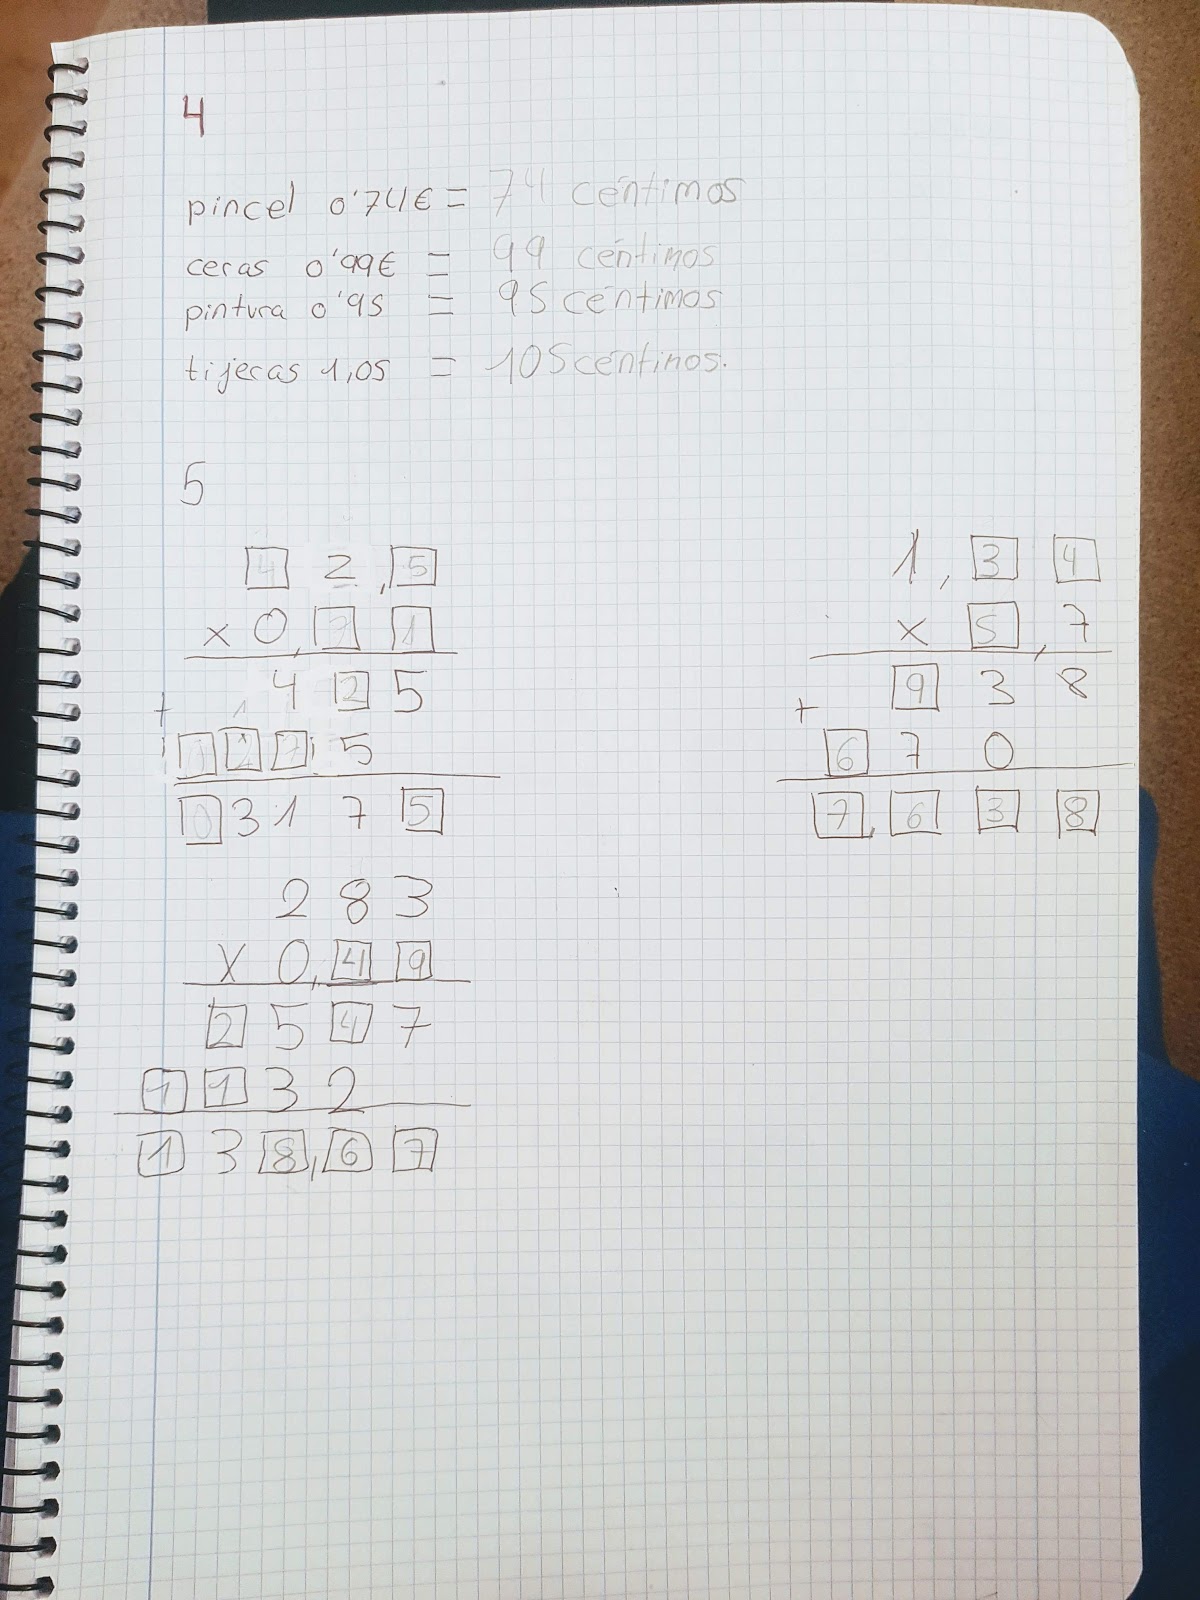 4
pincel 0'74€ = 74 céntimos
ceras 0'99€ = 99 céntimos
pintura 0'95 = 95 céntimos
tijeras 1,05 = 105 céntimos.
5
4 2,5
x 0,7 1
4 2 5
+
1 2 7 5
0 3 1 7 5
1,3 4
x 5,7
9 3 8
+
6 7 0
7,6 3 8
2 8 3
x 0,4 9
2 5 4 7
1 1 3 2
1 3 8,6 7